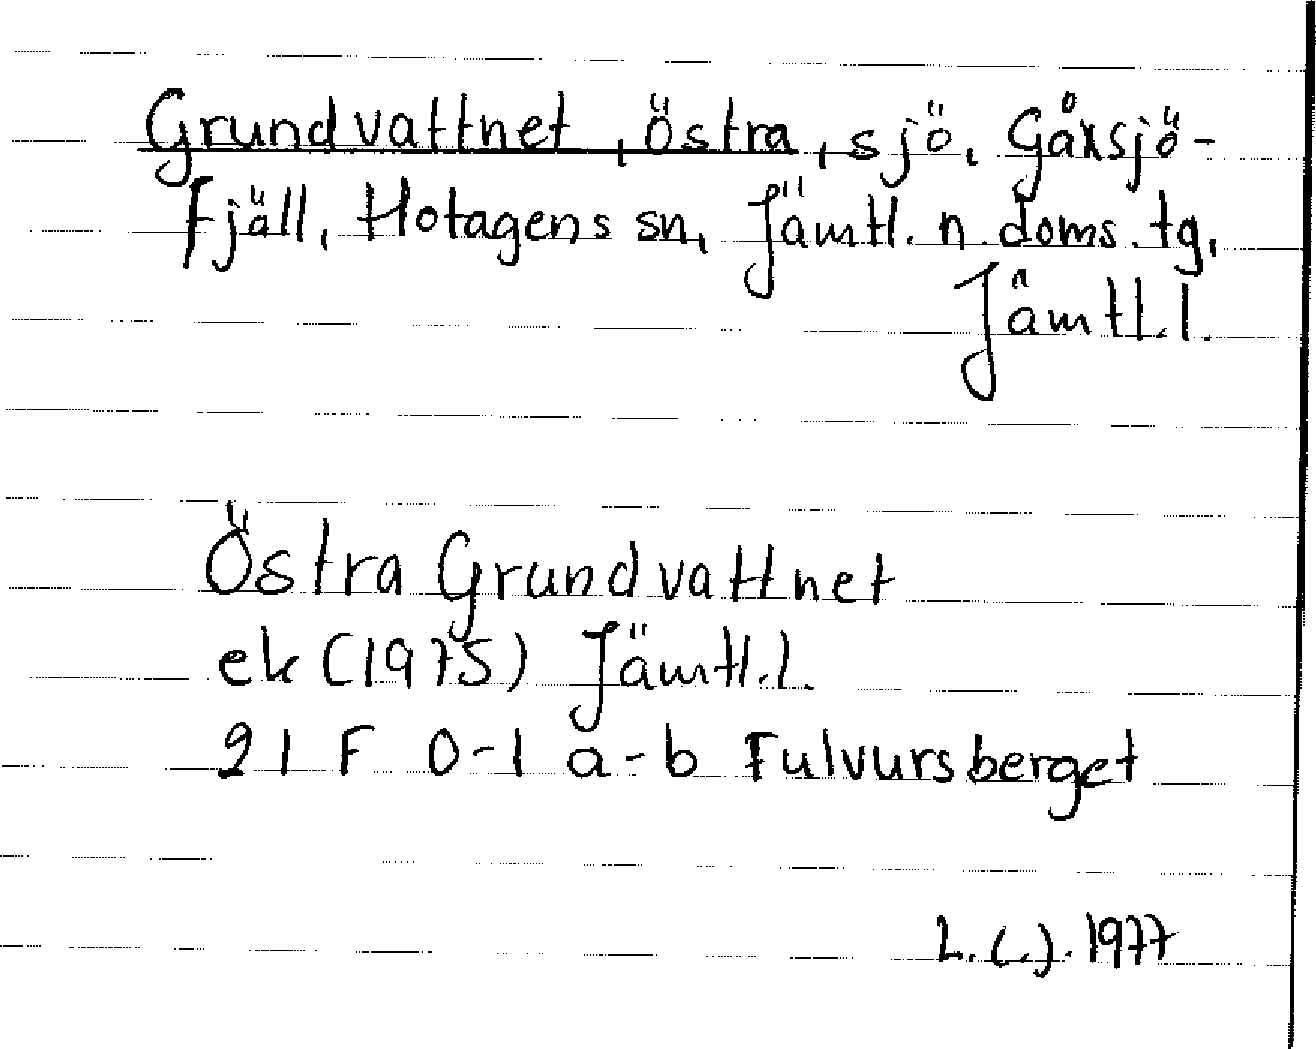 Grundvattnet, Östra, sjö, Gåxsjö-
fjäll, Hotagens sn, Jämtl. n. doms. tg,
Jämtl. l.
Östra Grundvattnet
ek (1975) Jämtl. l.
21 F 0-1 a-b Fulvursberget
1977